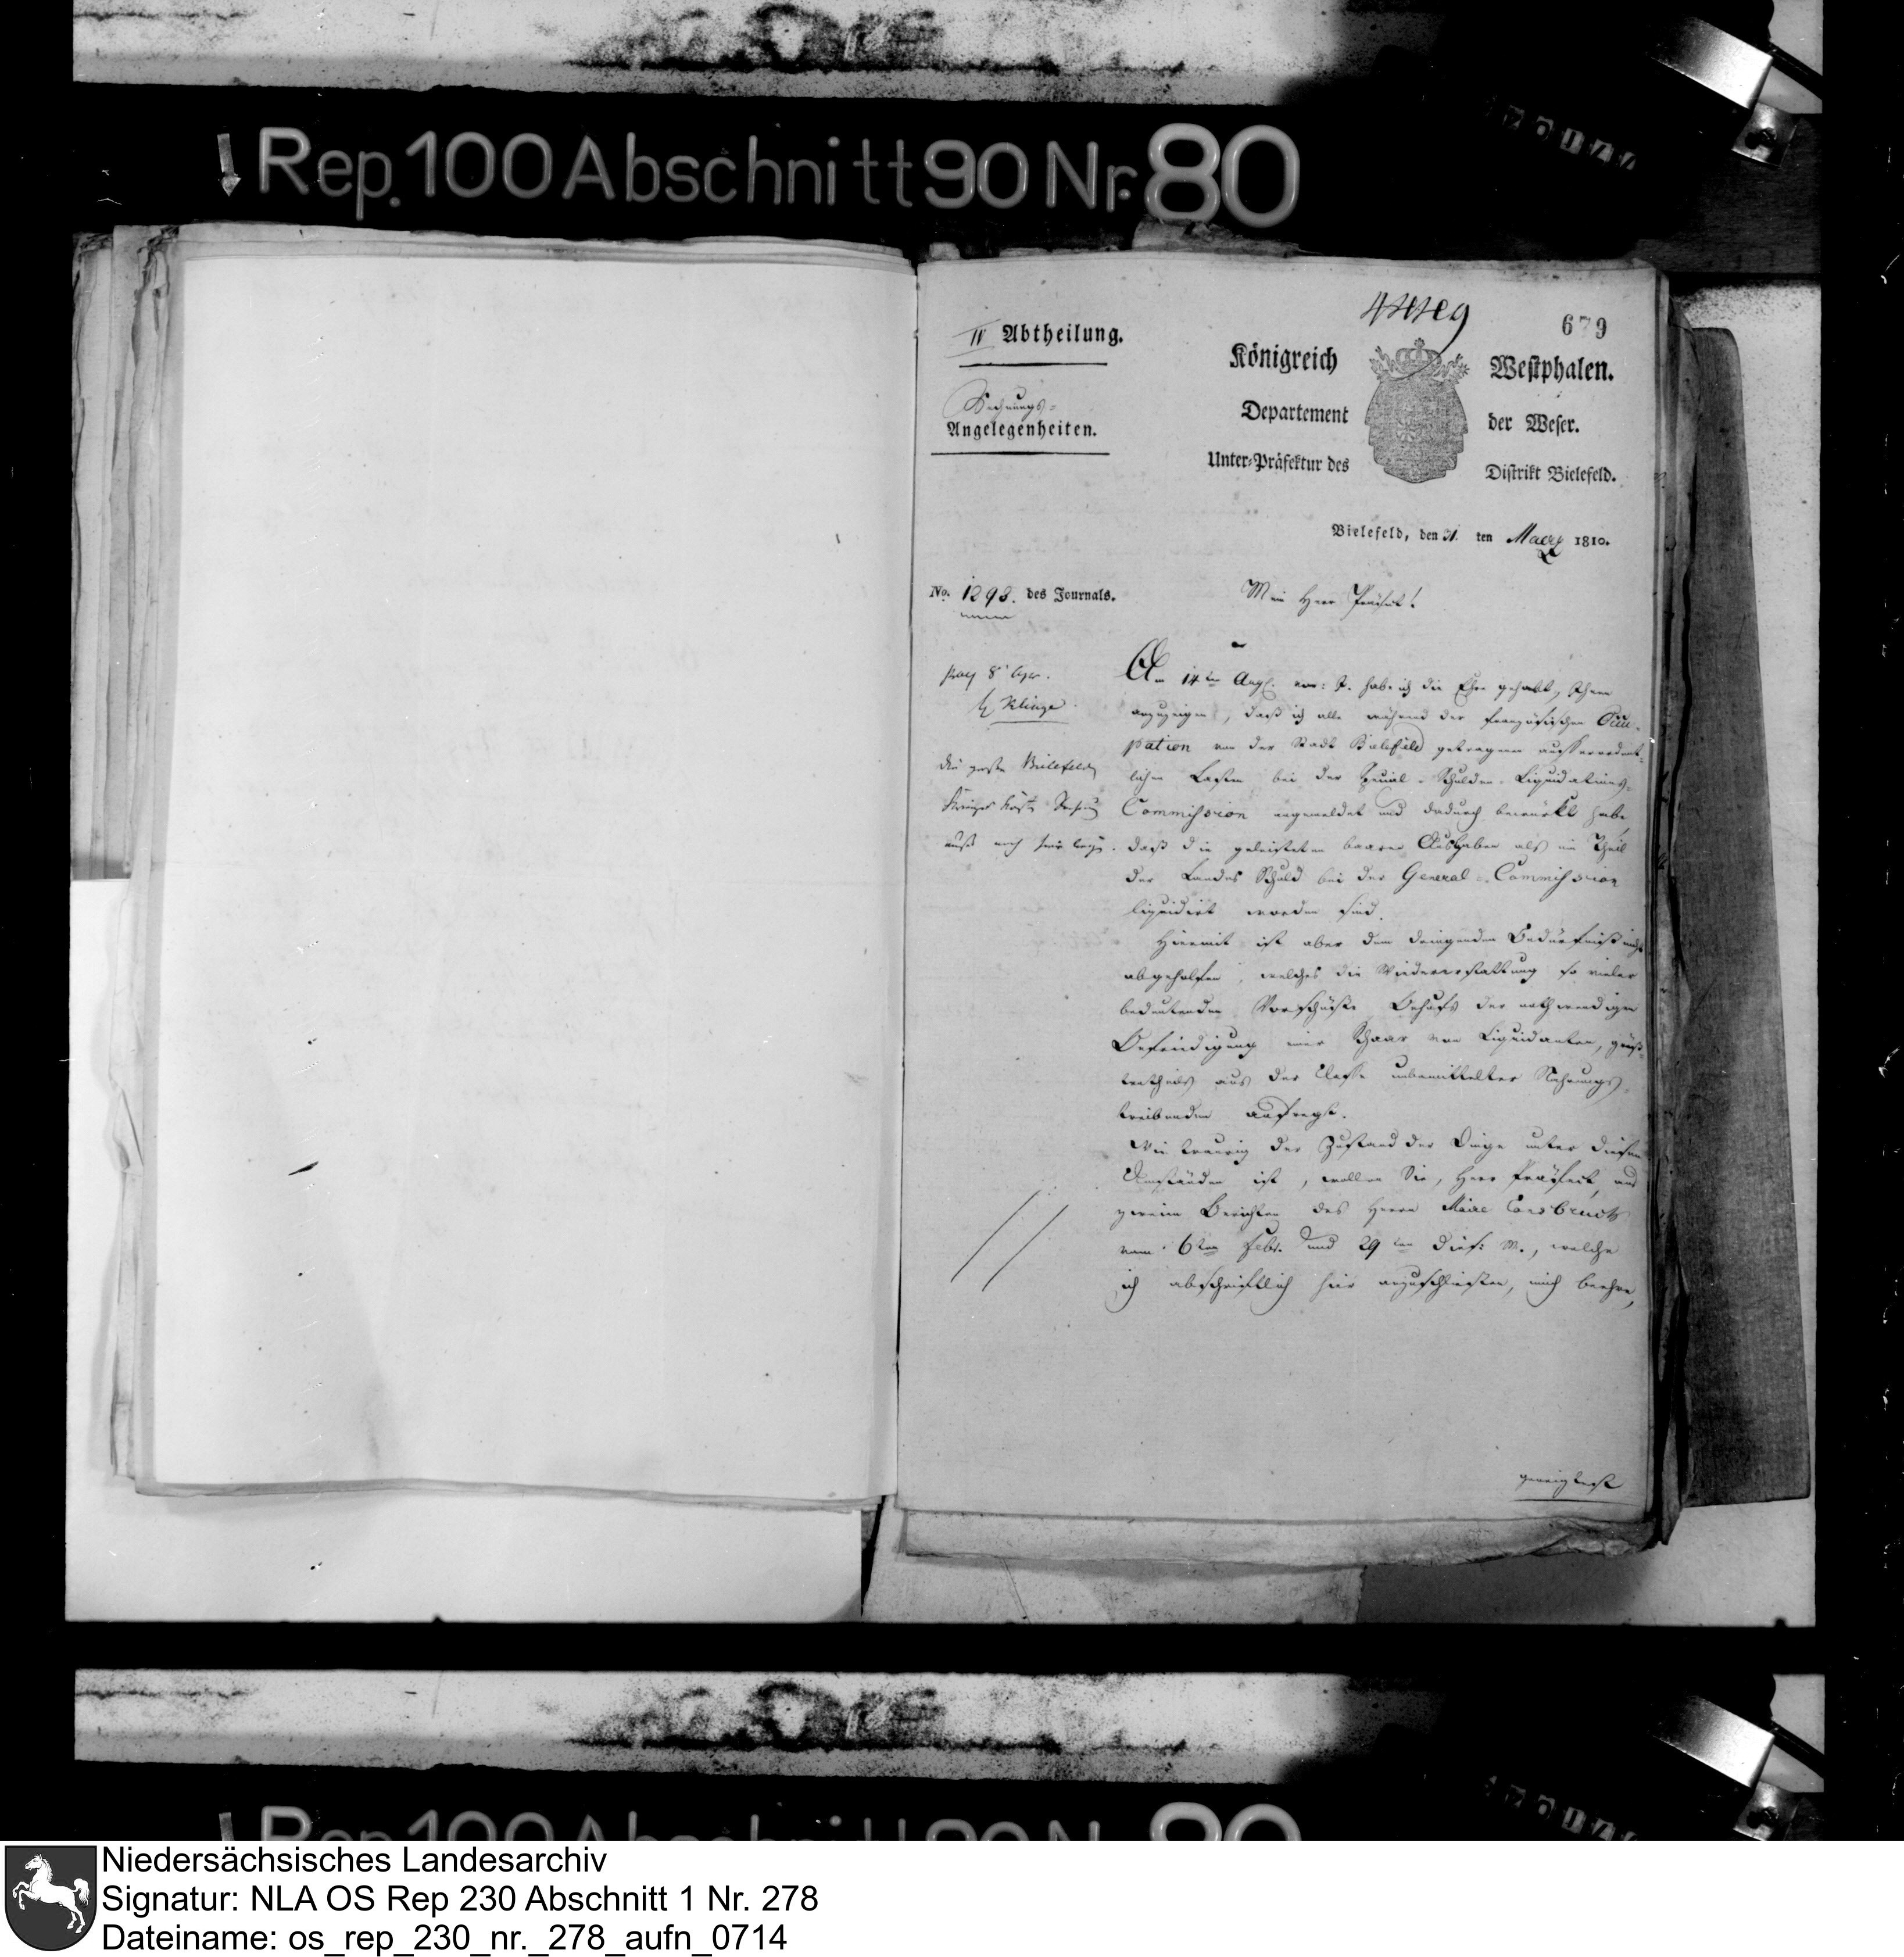 Rep. 100 Abschnitt 90 Nr. 80
679
IV Abtheilung.
Rechnungs-
Angelegenheiten.
Königreich Westphalen.
Departement der Weser.
Unter-Präfektur des Distrikt Bielefeld.
Bielefeld, den 31 ten Maerz 1810.
No. 1298. des Journals.
Mein Herr Präfect!
Klinge
Am 14ten Aug. vor: J. habe ich die Ehre gehabt, Ihnen
anzuzeigen, daß ich alle während der französischen Occu-
pation von der Stadt Bielefeld getragenen ausserordent-
lichen Lasten bei der Special-Schulden-Liquidations-
Commission angemeldet und dadurch bewürkt habe,
daß die geleisteten baaren Ausgaben als ein Theil
der Landes Schuld bei der General-Commission
liquidirt worden sind.
Hiermit ist aber dem dringenden Bedürfniß nicht
abgeholfen, welches die Wiedererstattung so vieler
bedeutenden Vorschüsse Behufs der nothwendigen
Befriedigung einer Schaar von Liquidanten, größ-
tentheils aus der Classe unbemittelter Nahrungs-
treibenden aufregt.
Wie traurig der Zustand der Dinge unter diesen
Umständen ist, wollen Sie, Herr Präfect, aus
zweien Berichten des Herrn Maire Consbruch
vom 6ten Febr. und 29ten dies: M., welche
ich abschriftlich hier anzuschließen, mich beehre,
geneigtest
Niedersächsisches Landesarchiv
Signatur: NLA OS Rep 230 Abschnitt 1 Nr. 278
Dateiname: os_rep_230_nr._278_aufn_0714